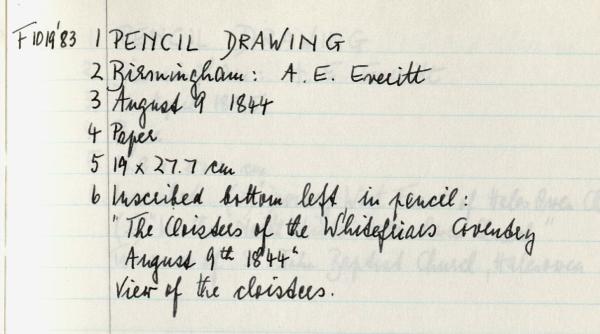 F1019'83 1 PENCIL DRAWING
2 Birmingham: A. E. Everitt
3 August 9 1844
4 Paper
5 19 x 27.7 cm
6 Inscribed bottom left in pencil:
"The Cloisters of the Whitefriars Coventry
August 9th 1844"
View of the cloisters.